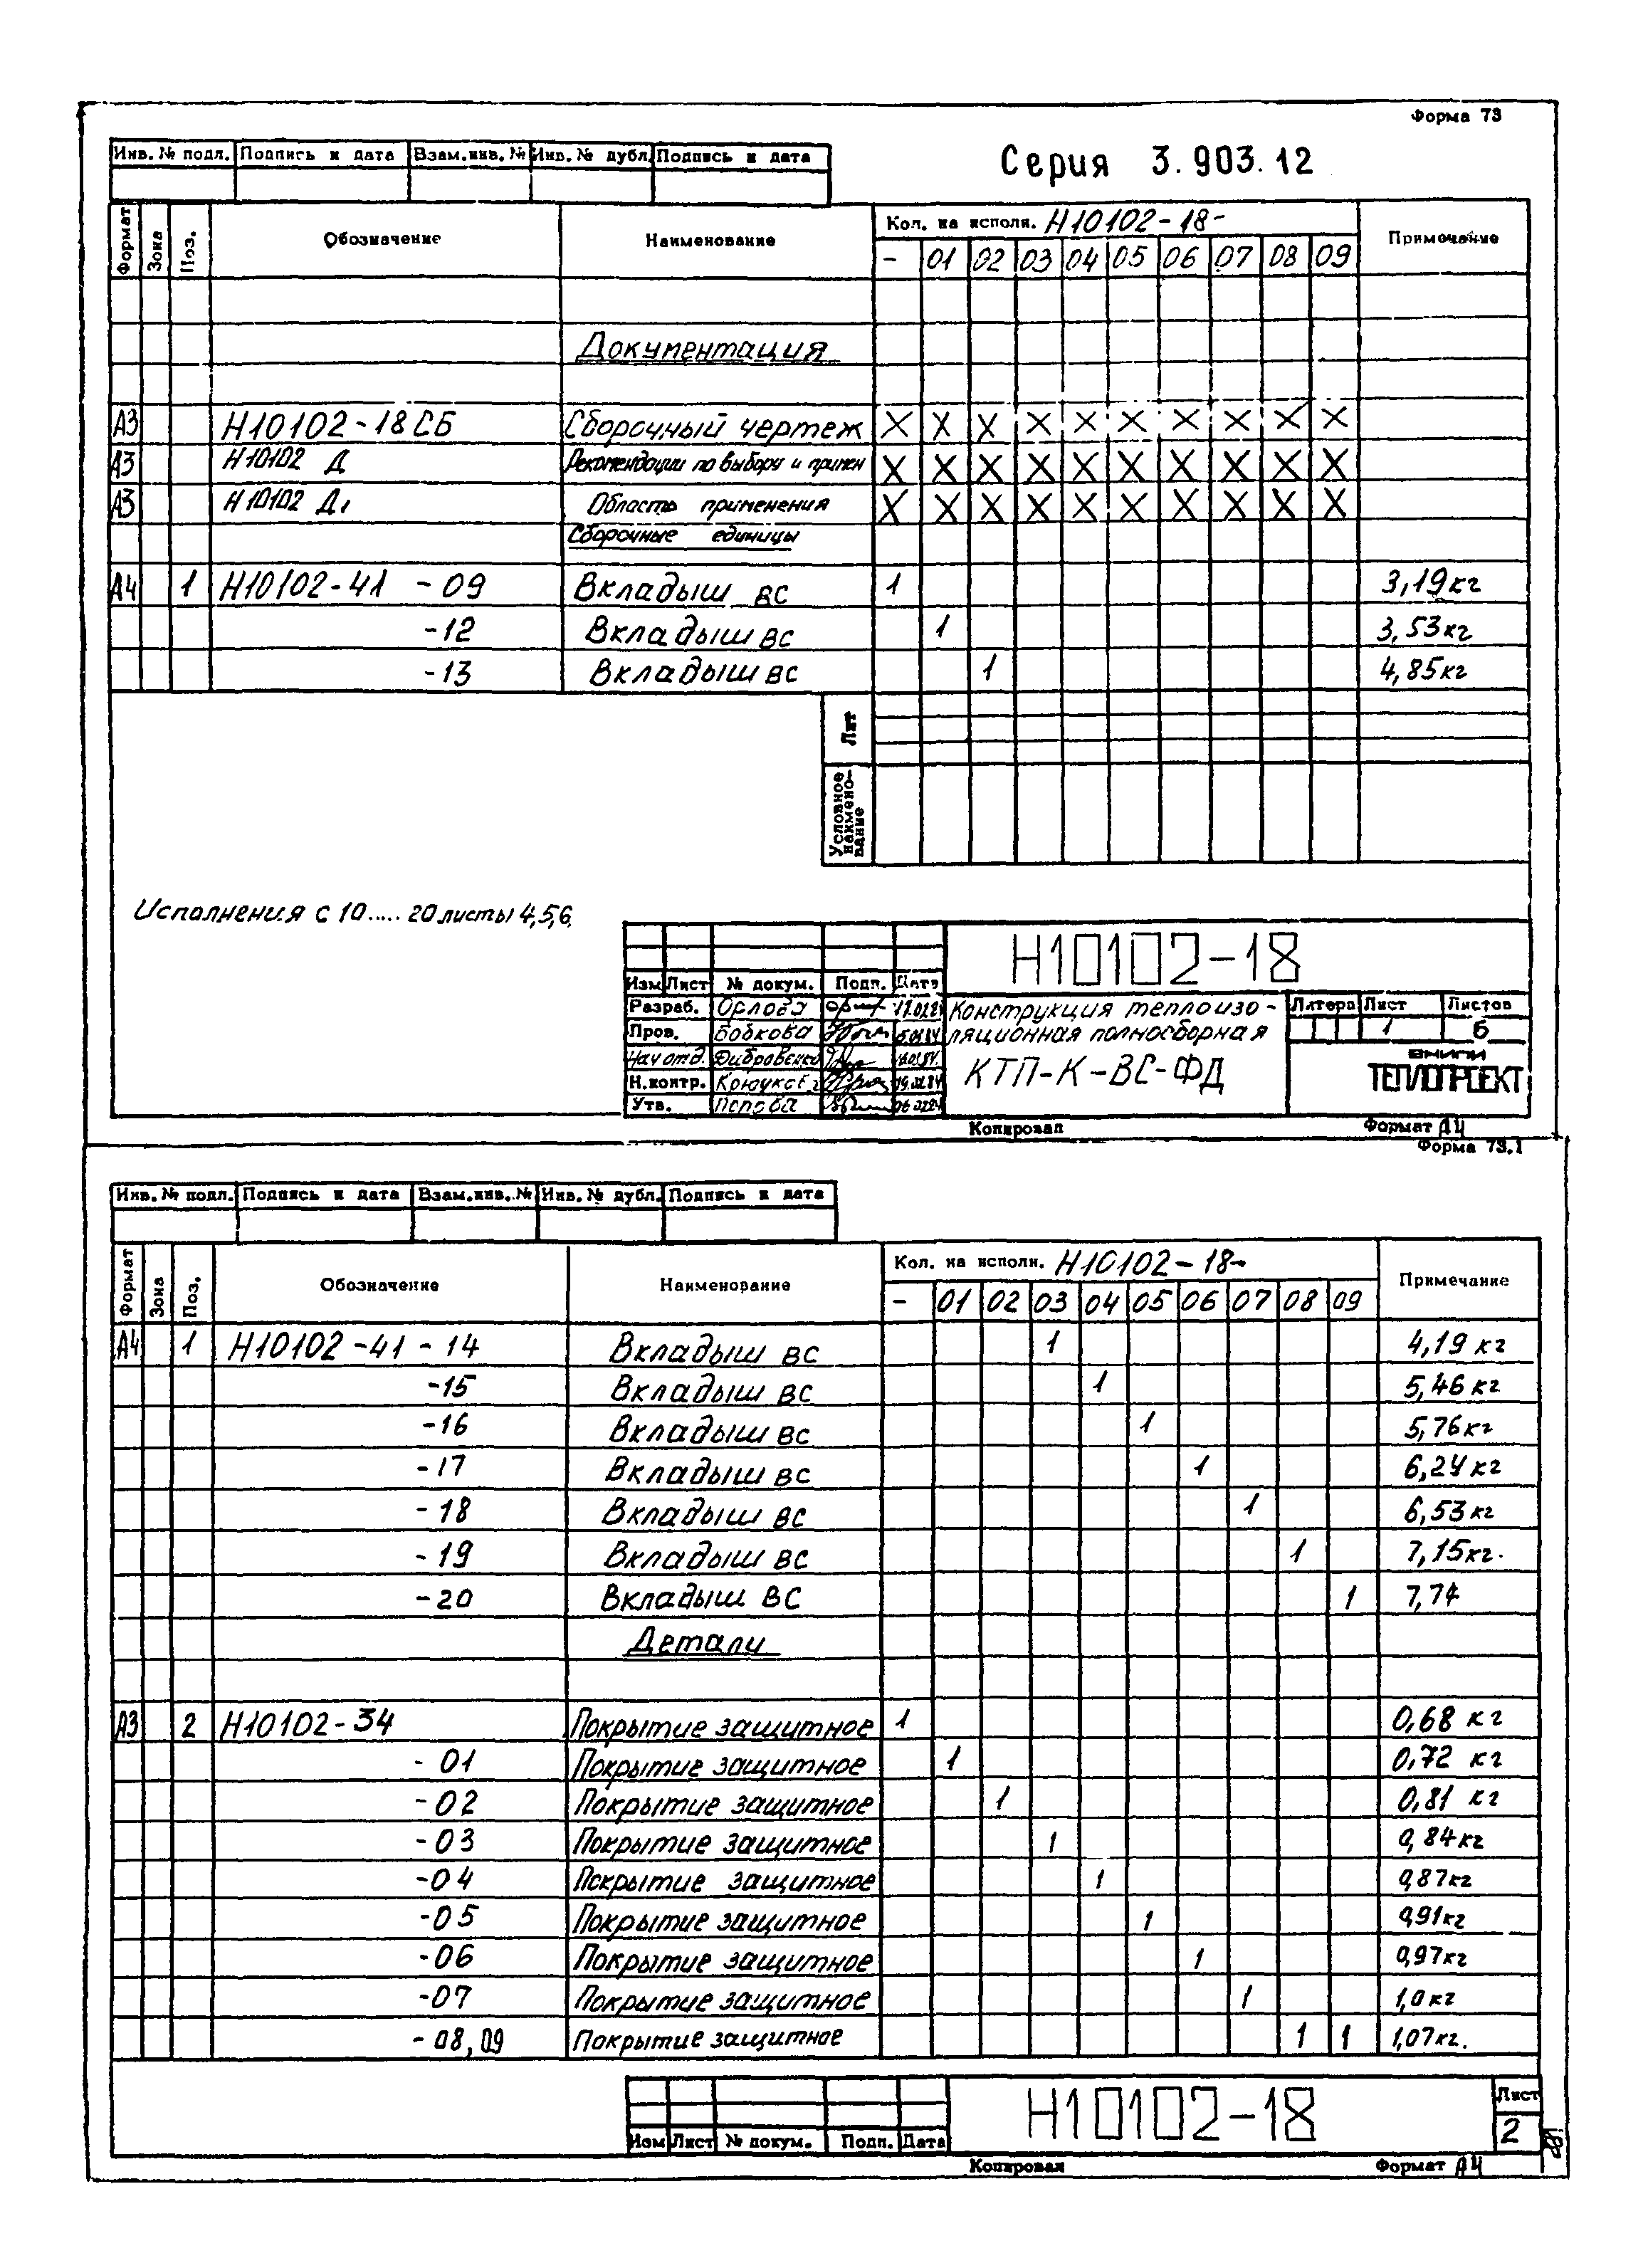 Форма 73
Инв. № подл. Подпись и дата Взам.инв. № Инв. № дубл. Подпись и дата
Серия 3.903.12
Формат Зона Поз. Обозначение Наименование Кол. на исполн. Н10102-18- Примечание
- 01 02 03 04 05 06 07 08 09
Документация
А3 Н10102-18СБ Сборочный чертеж X X X X X X X X X X
А3 Н10102 Д Рекомендации по выбору и примен X X X X X X X X X X
А3 Н10102 Д1 Область применения X X X X X X X X X X
Сборочные единицы
А4 1 Н10102-41 -09 Вкладыш ВС 1 3,19кг
-12 Вкладыш ВС 1 3,53кг
-13 Вкладыш ВС 1 4,85кг
Лит
Условное наимено-вание
Исполнения с 10.....20 листы 4,5,6.
Н10102-18
Изм Лист № докум. Подп. Дата
Разраб. Орлова
Пров. Бобкова
Нач отд.
Н.контр.
Утв. Попова
Конструкция теплоизо-
ляционная полносборная
КТП-К-ВС-ФД
Литера Лист Листов
1 6
ВНИПИ
ТЕПЛОПРОЕКТ
Копировал Формат А4
Форма 73.1
Инв. № подл. Подпись и дата Взам.инв. № Инв. № дубл. Подпись и дата
Формат Зона Поз. Обозначение Наименование Кол. на исполн. Н10102-18- Примечание
- 01 02 03 04 05 06 07 08 09
А4 1 Н10102-41-14 Вкладыш ВС 1 4,19 кг
-15 Вкладыш ВС 1 5,46 кг
-16 Вкладыш ВС 1 5,76кг
-17 Вкладыш ВС 1 6,24 кг
-18 Вкладыш ВС 1 6,53 кг
-19 Вкладыш ВС 1 7,15кг.
-20 Вкладыш ВС 1 7,74
Детали
А3 2 Н10102-34 Покрытие защитное 1 0,68 кг
-01 Покрытие защитное 1 0,72 кг
-02 Покрытие защитное 1 0,81 кг
-03 Покрытие защитное 1 0,84кг
-04 Покрытие защитное 1 0,87кг
-05 Покрытие защитное 1 0,91кг
-06 Покрытие защитное 1 0,97кг
-07 Покрытие защитное 1 1,0кг
-08,09 Покрытие защитное 1 1 1,07кг.
Н10102-18
Лист
2
Изм Лист № докум. Подп. Дата
Копировал Формат А4